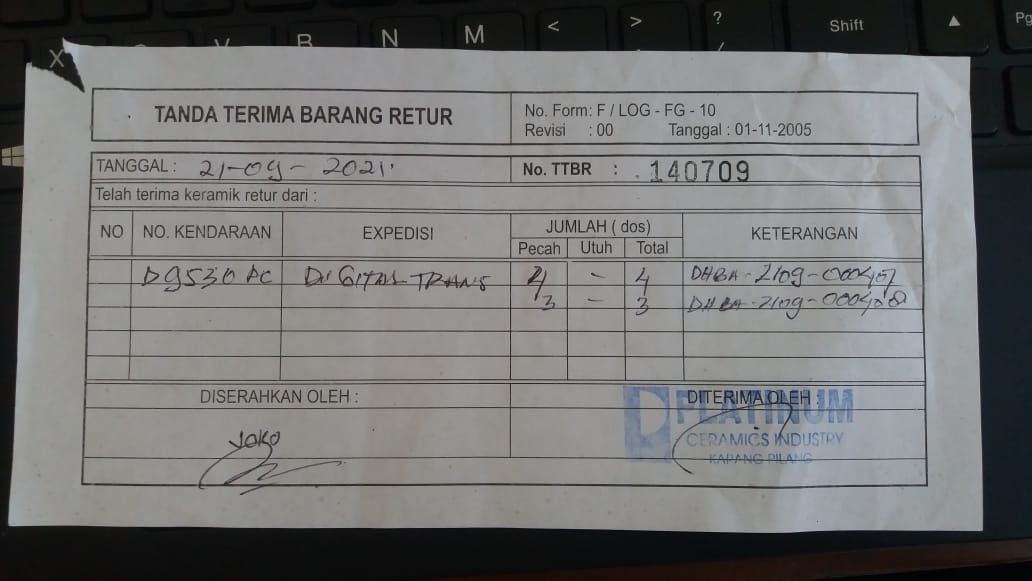 TANDA TERIMA BARANG RETUR
No. Form: F / LOG - FG - 10
Revisi : 00 Tanggal : 01-11-2005
TANGGAL : 21-09-2021
No. TTBR : 140709
Telah terima keramik retur dari :
NO NO. KENDARAAN EXPEDISI JUMLAH ( dos) KETERANGAN
Pecah Utuh Total
D9530AC DIGITAL TRANS 4 - 4 DHBA-2109-000407
3 - 3 DHBA-2109-000408
DISERAHKAN OLEH :
DITERIMA OLEH :
PLATINUM
CERAMICS INDUSTRY
KARANG PILANG
Joko
X V B N M < > ? / Shift ▲ Pg